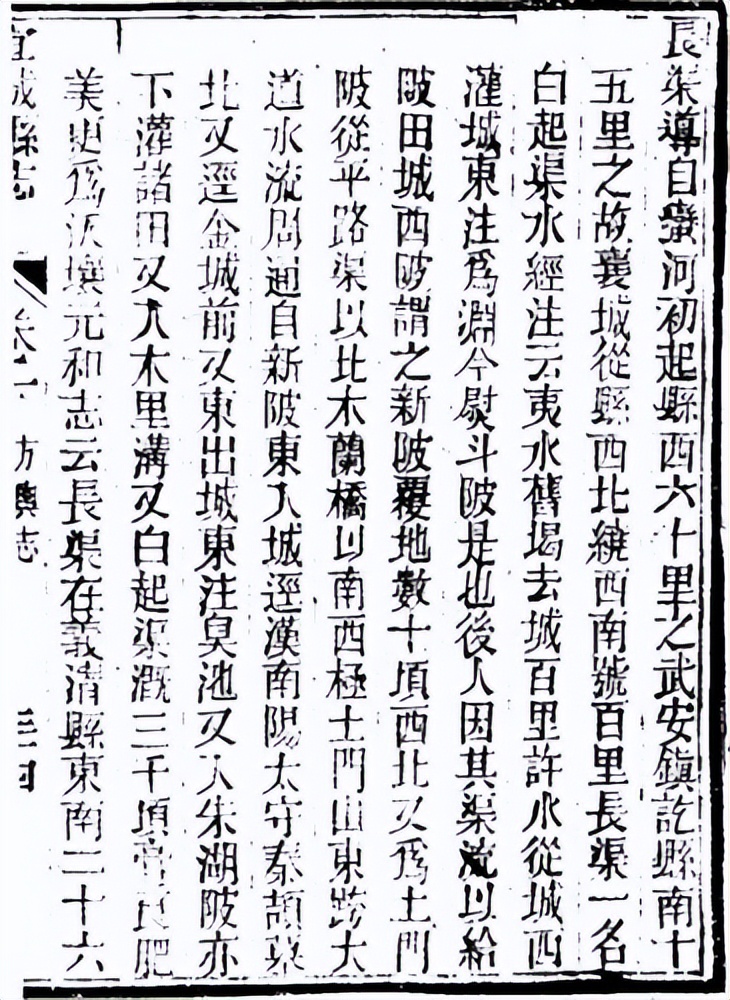 長渠導自蠻河初起縣西六十里之武安鎮訖縣南十
五里之故襄城從縣西北繞西南號百里長渠一名
白起渠水經注云夷水舊堨去城百里許水從城西
灌城東注為淵今熨斗陂是也後人因其渠流以給
陂田城西陂謂之新陂覆地數十頃西北又為土門
陂從平路渠以北木蘭橋以南西極土門山東跨大
道水流周通自新陂東入城逕漢南陽太守秦頡冢
北又逕金城前又東出城東注臭池又入朱湖陂亦
下灌諸田又入木里溝又白起渠溉三千頃膏良肥
美更為沃壤元和志云長渠在義清縣東南二十六
宜城縣志 卷一 方輿志 三四